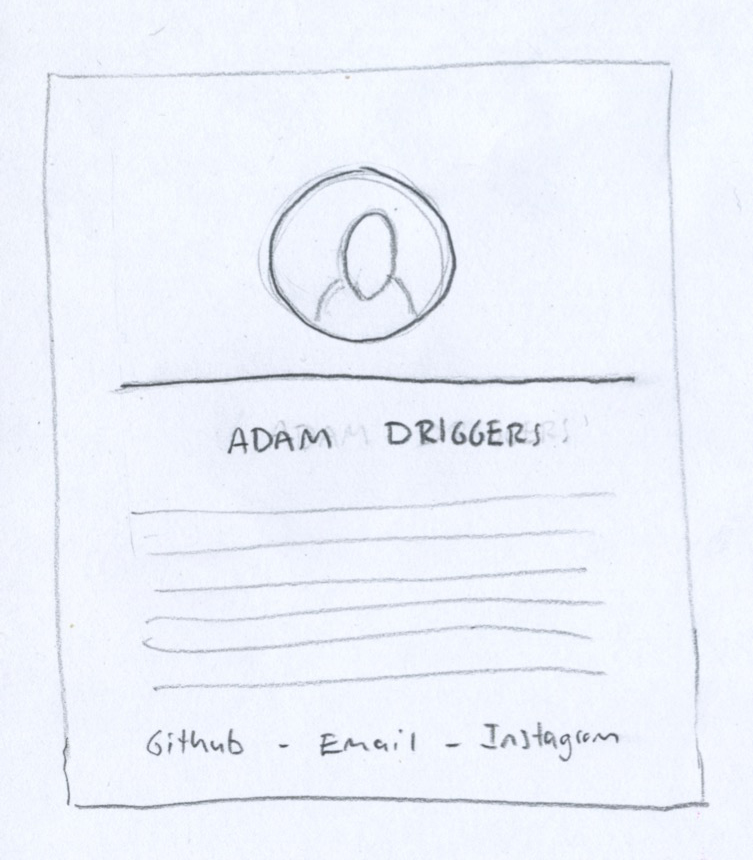 ADAM DRIGGERS
Github - Email - Instagram